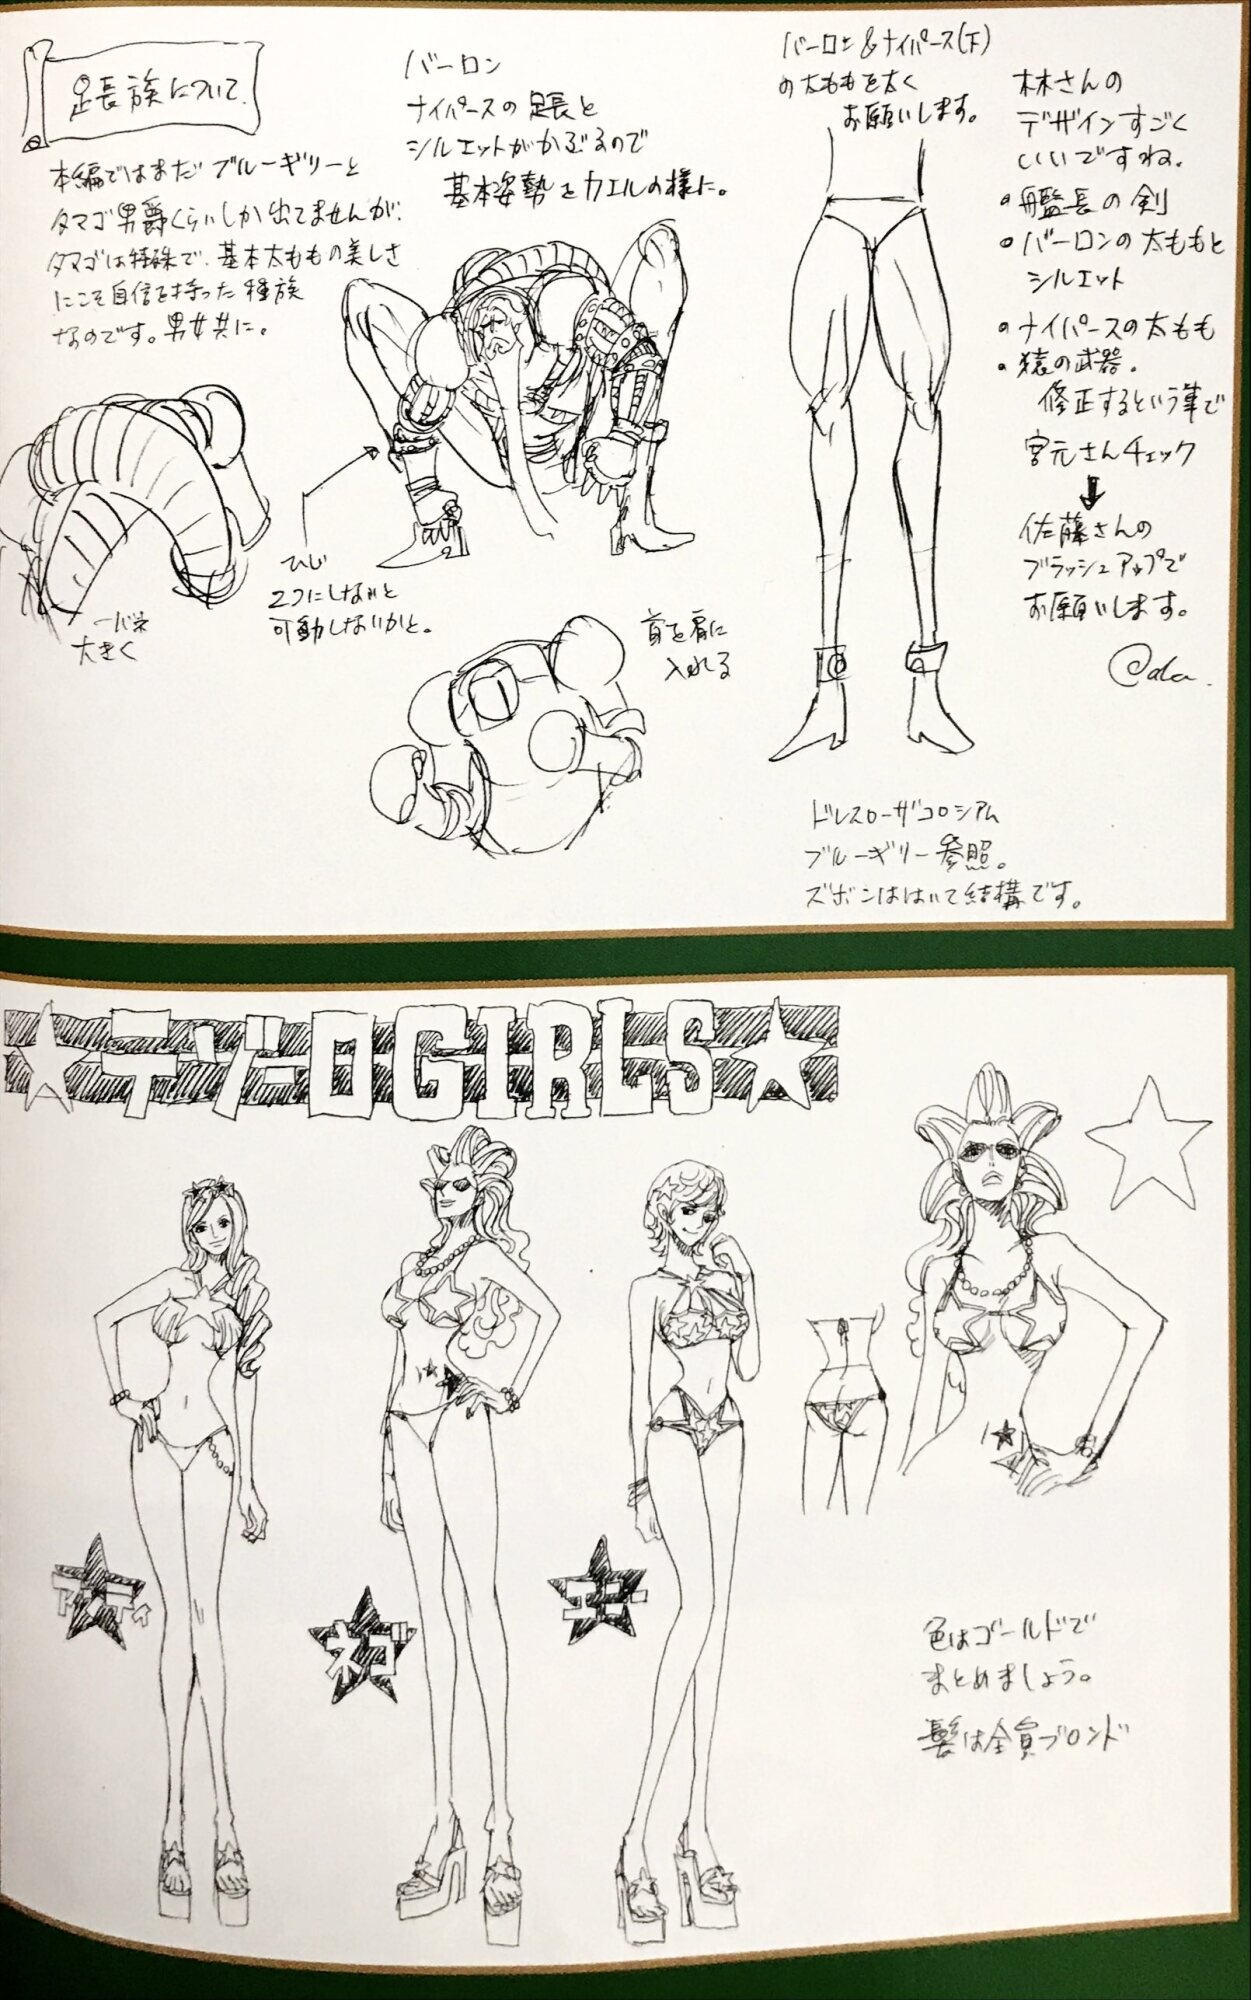 足長族について。
本編ではまだブルーギリーと
タマゴ男爵くらいしか出てませんが、
タマゴは特殊で、基本太ももの美しさ
にこそ自信を持った種族
なのです。男女共に。
一番
大きく
バーロン
ナイパースの足長と
シルエットがかぶるので
基本姿勢をカエルの様に。
ひじ
2つにしないと
可動しないかと。
首を肩に
入れる
バーロン&ナイパース(下)
の太ももを太く
お願いします。
ドレスローザコロシアム
ブルーギリー参照。
ズボンははいて結構です。
林さんの
デザインすごく
いいですね。
艦長の剣
バーロンの太ももと
シルエット
ナイパースの太もも
猿の武器。
修正するという事で
宮元さんチェック
佐藤さんの
ブラッシュアップで
お願いします。
@da.
テゾーロGIRLS
色はゴールドで
まとめましょう。
髪は全員ブロンド